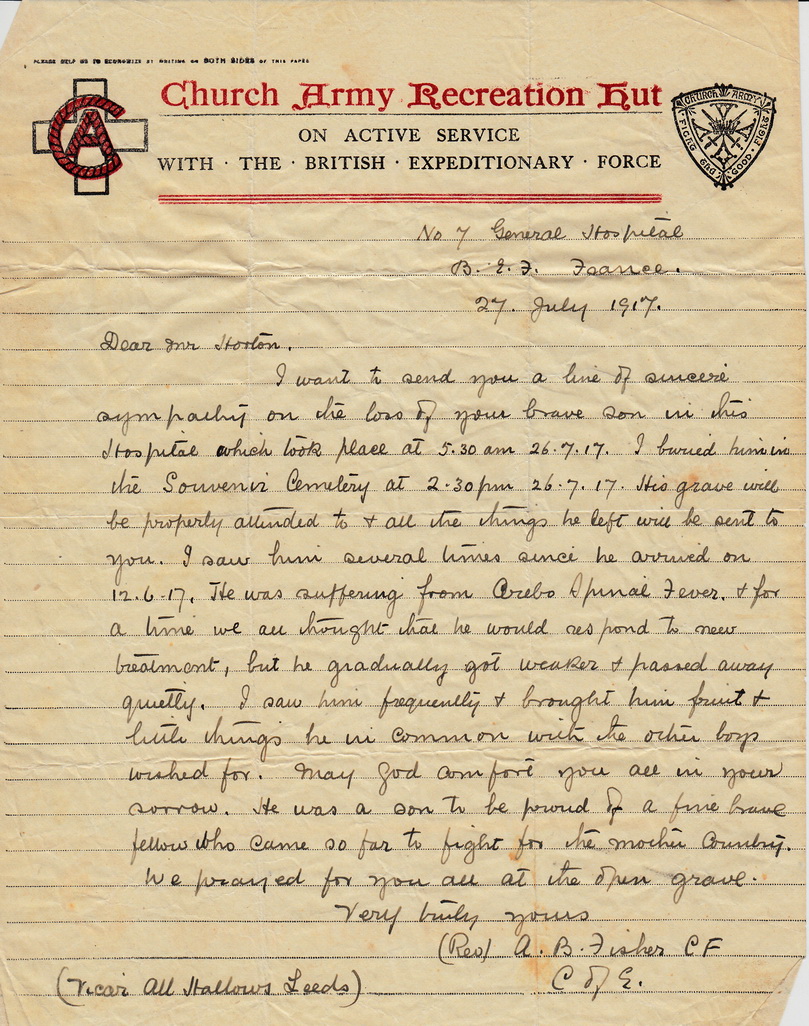 PLEASE HELP US TO ECONOMIZE BY WRITING ON BOTH SIDES OF THIS PAPER
CA
Church Army Recreation Hut
CHURCH ARMY FIGHT THE GOOD FIGHT
ON ACTIVE SERVICE
WITH · THE · BRITISH · EXPEDITIONARY · FORCE
No 7 General Hospital
B. E. F. France.
27. July 1917.
Dear Mr Horton.
I want to send you a line of sincere
sympathy on the loss of your brave son in this
Hospital which took place at 5.30 am 26.7.17. I buried him in
the Souvenir Cemetery at 2.30 pm 26.7.17. His grave will
be properly attended to & all the things he left will be sent to
you. I saw him several times since he arrived on
12.6.17. He was suffering from Crebo Spinal Fever. & for
a time we all thought that he would respond to new
treatment, but he gradually got weaker & passed away
quietly. I saw him frequently & brought him fruit &
little things he in common with the other boys
wished for. May God comfort you all in your
sorrow. He was a son to be proud of a fine brave
fellow who came so far to fight for the mother Country.
We prayed for you all at the open grave.
Very truly yours
(Rev) A. B. Fisher CF
C of E.
(Vicar All Hallows Leeds)